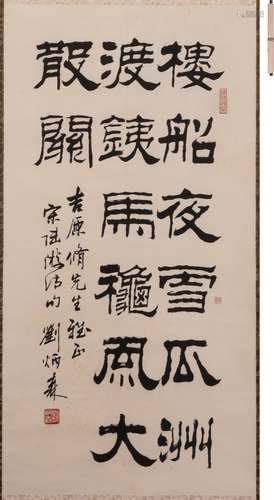 樓船夜雪瓜洲
渡銕馬龝風大
散關
吉原脩先生雅正
宋陸游詩句 劉炳森